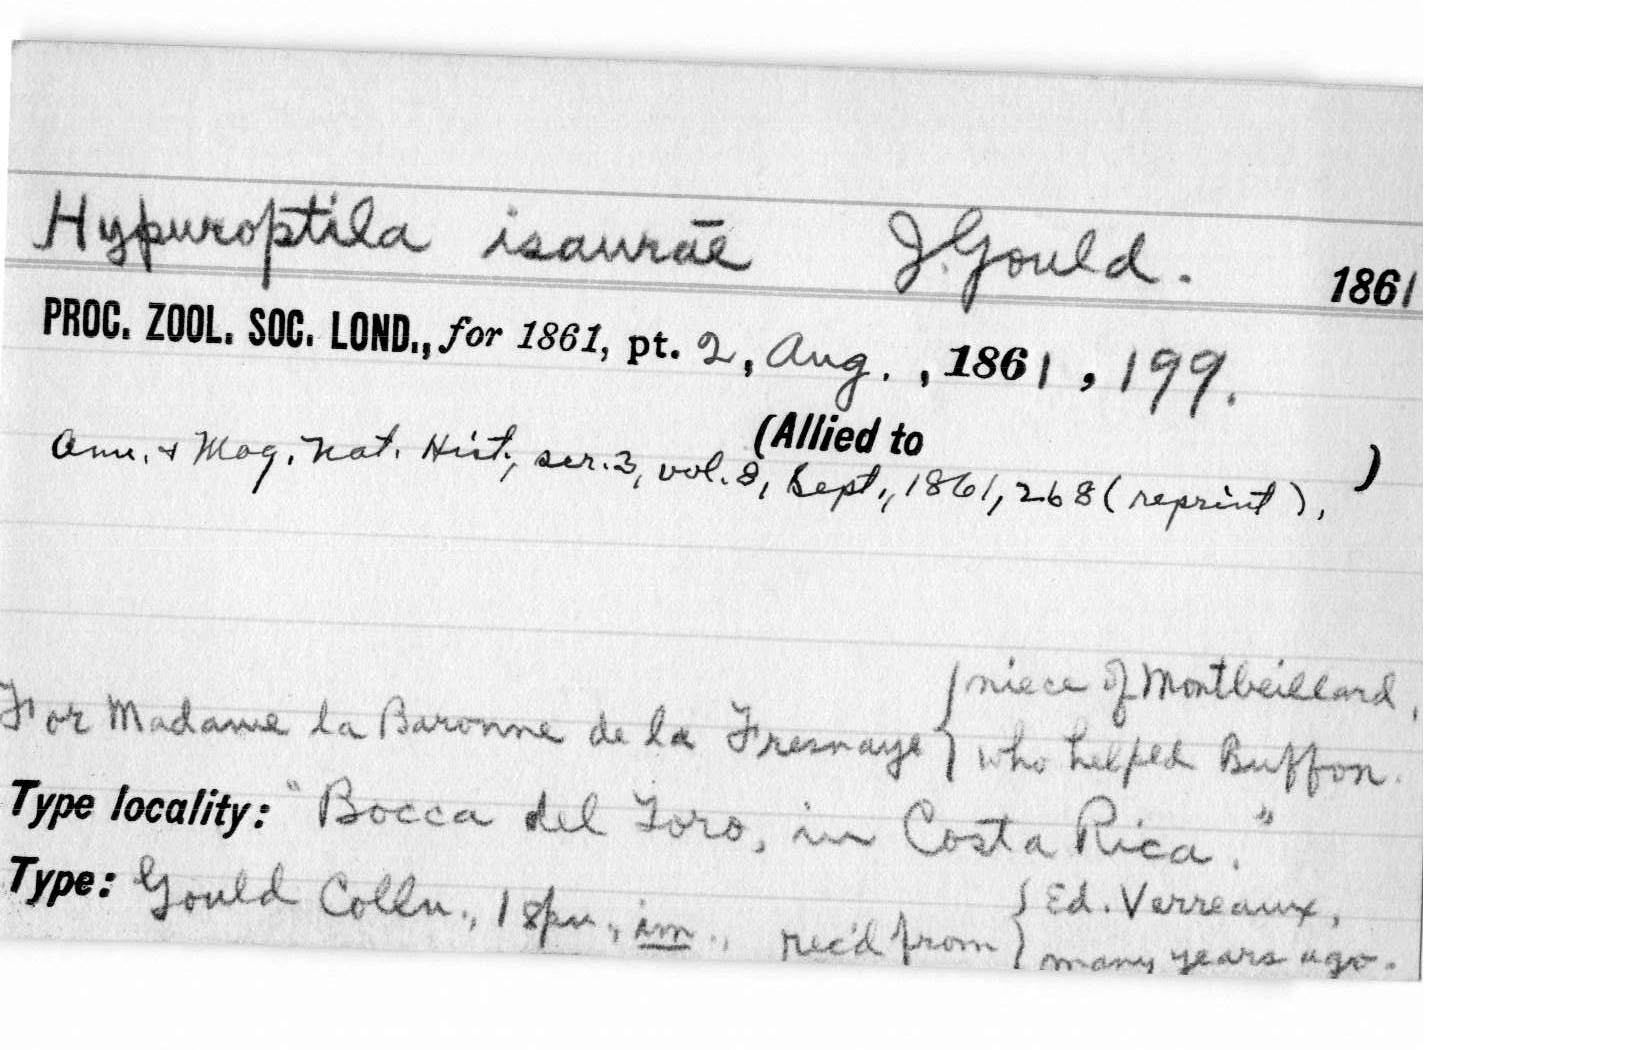 Hypuroptila isaurae J. Gould. 1861
PROC. ZOOL. SOC. LOND., for 1861, pt. 2, Aug., 1861, 199.
(Allied to )
Ann. & Mag. Nat. Hist., ser. 3, vol. 8, Sept., 1861, 268 (reprint),
For Madame la Baronne de la Fresnaye { niece of Montbeillard,
who helped Buffon.
Type locality: "Bocca del Toro, in Costa Rica."
Type: Gould Colln., 1 spn., im., rec'd from { Ed. Verreaux,
many years ago.